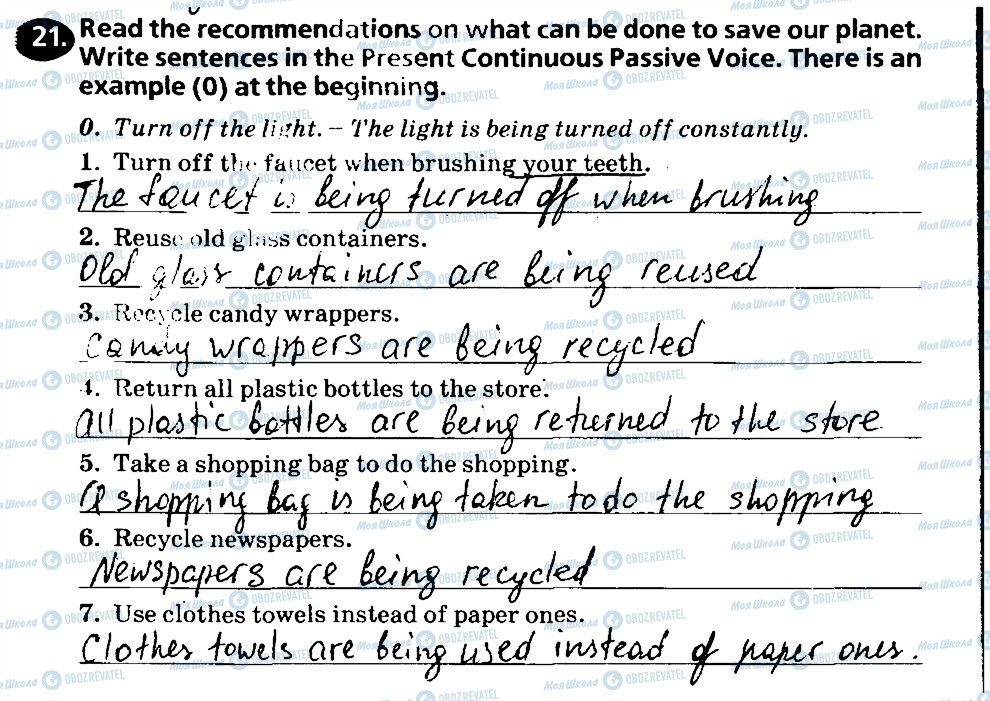 21. Read the recommendations on what can be done to save our planet.
Write sentences in the Present Continuous Passive Voice. There is an
example (0) at the beginning.
0. Turn off the light. – The light is being turned off constantly.
1. Turn off the faucet when brushing your teeth.
The faucet is being turned off when brushing
2. Reuse old glass containers.
Old glass containers are being reused
3. Recycle candy wrappers.
Candy wrappers are being recycled
4. Return all plastic bottles to the store.
all plastic bottles are being returned to the store
5. Take a shopping bag to do the shopping.
A shopping bag is being taken to do the shopping
6. Recycle newspapers.
Newspapers are being recycled
7. Use clothes towels instead of paper ones.
Clothes towels are being used instead of paper ones.